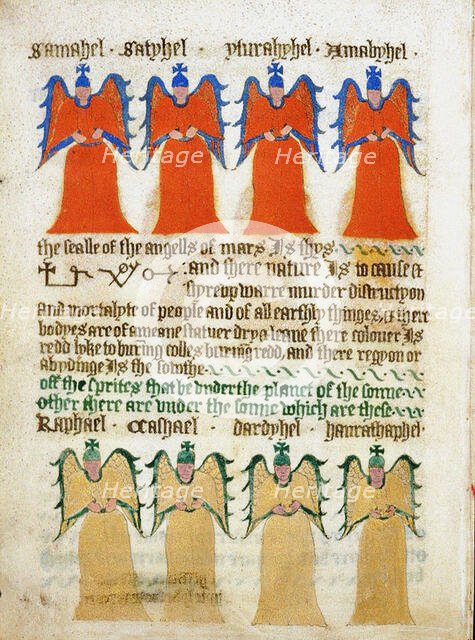 Samahel · Satyhel · yturahyhel · Amabyhel ·
the sealle of the angells of mars Is thys
: and there nature Is to cause &
styre up warre murder distructyon
And mortalyte of people and of all earthly thinges, & there
bodyes are of a meane statuer dry & leane there colouer Is
redd lyke to buring colles buring redd, and there regyon or
abydinge Is the sowthe
off the sprites that be under the planet of the sonne
other there are under the sonne which are these
Raphael · Cashael · dardyhel · hanrathaphel ·
Heritage Heritage
Heritage Heritage
Heritage Heritage
Heritage Heritage